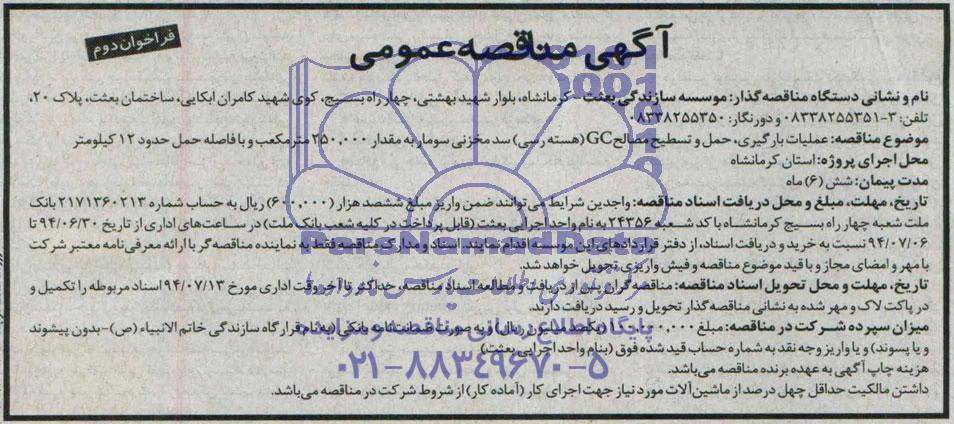 آگهی مناقصه عمومی
فراخوان دوم
نام و نشانی دستگاه مناقصه گذار: موسسه سازندگی بعثت - کرمانشاه، بلوار شهید بهشتی، چهار راه بسیج، کوی شهید کامران ابکایی، ساختمان بعثت، پلاک ۲۰،
تلفن: ۳-۰۸۳۳۸۲۵۵۳۵۱ و دورنگار: ۰۸۳۳۸۲۵۵۳۵۰
موضوع مناقصه: عملیات بارگیری، حمل و تسطیح مصالح GC (هسته رسی) سد مخزنی سومار به مقدار ۲۵۰,۰۰۰ مترمکعب و با فاصله حمل حدود ۱۲ کیلومتر
محل اجرای پروژه: استان کرمانشاه
مدت پیمان: شش (۶) ماه
تاریخ، مهلت، مبلغ و محل دریافت اسناد مناقصه: واجدین شرایط می توانند ضمن واریز مبلغ ششصد هزار (۶۰۰,۰۰۰) ریال به حساب شماره ۲۱۷۱۳۶۰۲۱۳ بانک
ملت شعبه چهار راه بسیج کرمانشاه با کد شعبه ۲۴۳۵۶۰ به نام واحد اجرایی بعثت (قابل پرداخت در کلیه شعب بانک ملت) در ساعت های اداری از تاریخ ۹۴/۰۶/۳۰ تا
۹۴/۰۷/۰۶ نسبت به خرید و دریافت اسناد، از دفتر قراردادهای این موسسه اقدام نمایند. اسناد و مدارک مناقصه فقط به نماینده مناقصه گر با ارائه معرفی نامه معتبر شرکت
با مهر و امضای مجاز و با قید موضوع مناقصه و فیش واریزی تحویل خواهد شد.
تاریخ، مهلت و محل تحویل اسناد مناقصه: مناقصه گران پس از دریافت و مطالعه اسناد مناقصه، حداکثر تا آخر وقت اداری مورخ ۹۴/۰۷/۱۳ اسناد مربوطه را تکمیل و
در پاکت لاک و مهر شده به نشانی مناقصه گذار تحویل و رسید دریافت دارند.
میزان سپرده شرکت در مناقصه: مبلغ ۱۰۰,۰۰۰,۰۰۰ (یکصد میلیون ریال) و به صورت ضمانت نامه بانکی (به نام قرارگاه سازندگی خاتم الانبیاء (ص)-بدون پیشوند
و یا پسوند) و یا واریز وجه نقد به شماره حساب قید شده فوق (بنام واحد اجرایی بعثت)
هزینه چاپ آگهی به عهده برنده مناقصه می باشد.
داشتن مالکیت حداقل چهل درصد از ماشین آلات مورد نیاز جهت اجرای کار (آماده کار) از شروط شرکت در مناقصه می باشد.
ParsNamadData
پایگاه اطلاع رسانی مناقصه و مزایده
۰۲۱-۸۸۳۴۹۶۷۰-۵